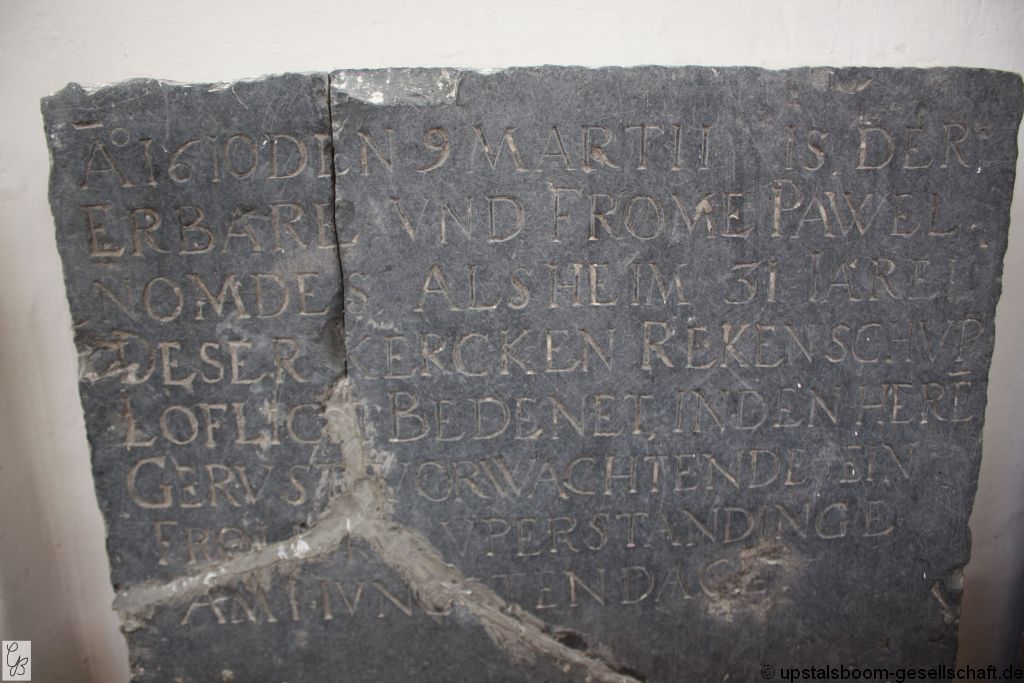 Āº 1610 DEN 9 MARTII IS DER
ERBARE VND FROME PAWEL
NOMDES ALSHEIM 31 IAREL
DESER KERCKEN REKENSCHVP
LOFLICK BEDENET INDEN HERĒ
GERVST VORWACHTENDE EIN
VPERSTANDINGE
AM IVNGSTENDAGE
GB
© upstalsboom-gesellschaft.de